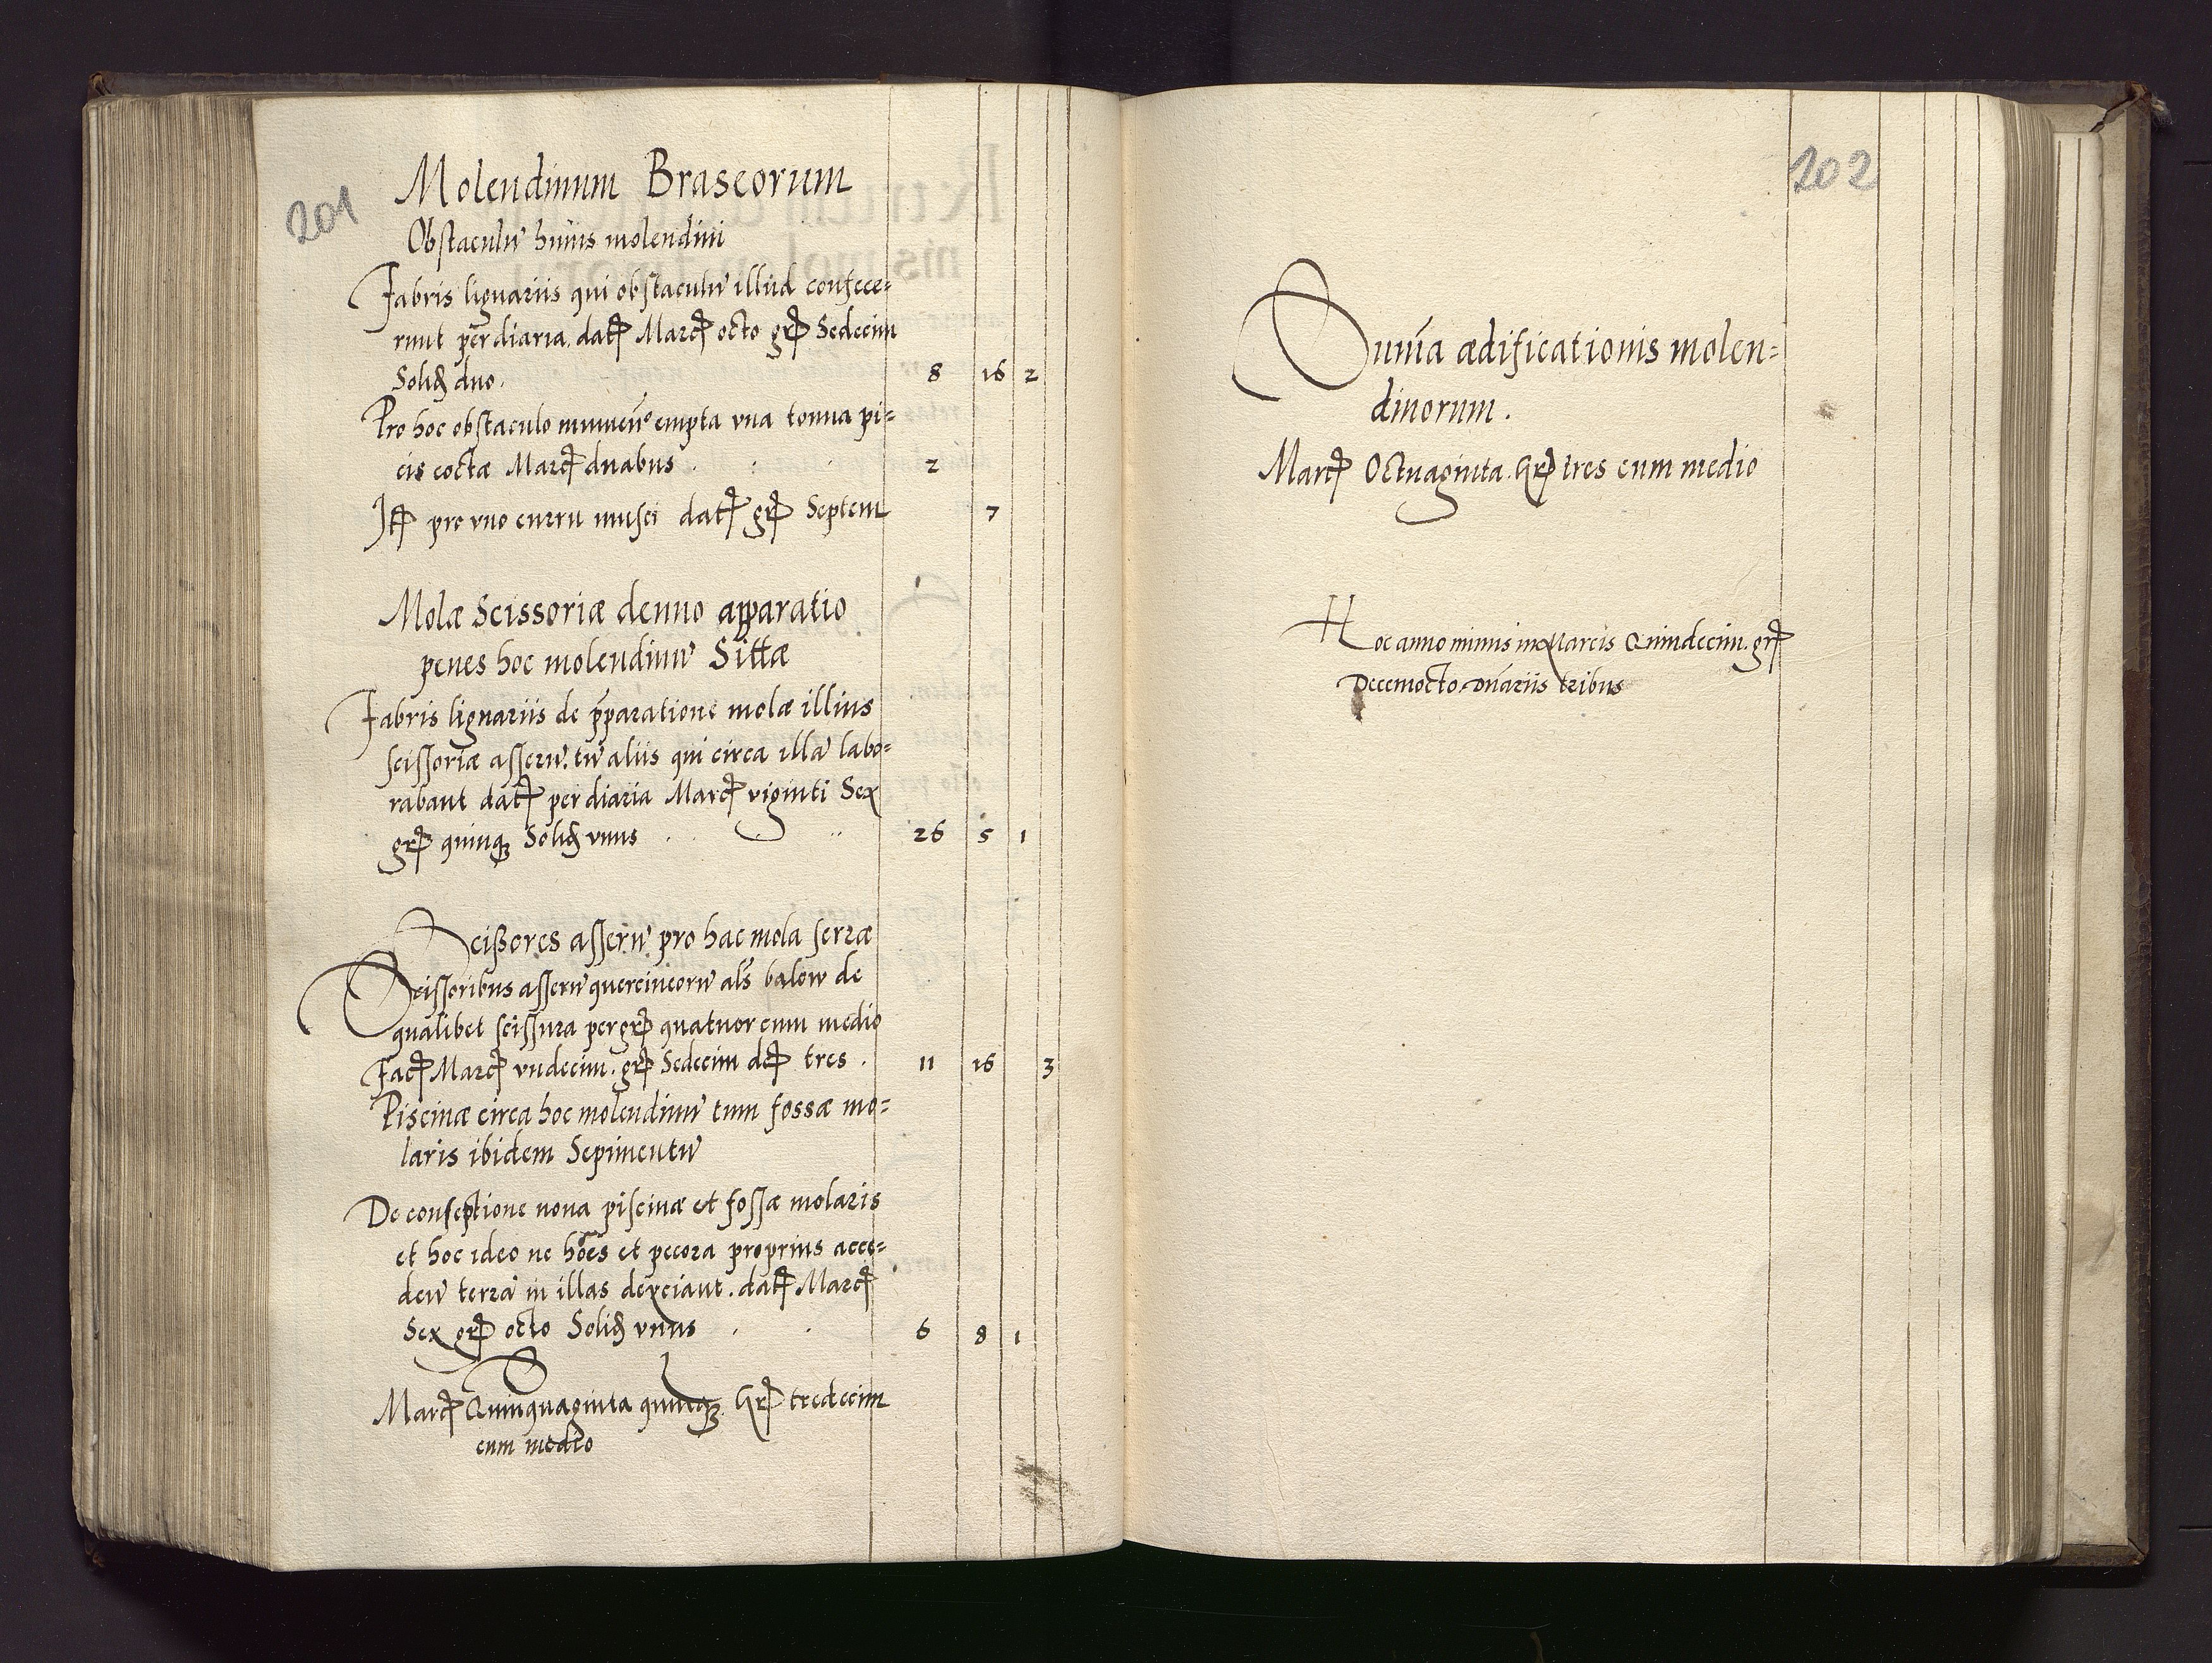 201
Molendinum Braseorum
Obstaculu͂ huius molendini
Fabris lignariis qui obstaculu͂ illud confece=
runt per diaria. datꝭ Marcꝭ octo grꝭ Sedecim
Solid duo. 8 16 2
Pro hoc obstaculo empta vna tonna pi=
cis coctæ Marcꝭ duabus . : . 2
Itꝭ pro vno curru musci datꝭ grꝭ Septem 7
Molæ Scissoriæ denuo apparatio
penes hoc molendinu͂ Sittæ
Fabris lignariis de p̄paratione molæ illius
scissoriæ asseru͂. tu͂ aliis qui circa illa͂ labo=
rabant datꝭ per diaria Marcꝭ viginti Sex
grꝭ quinqꝫ Solid vnus . . .. 26 5 1
Scissores asseru͂ pro hac mola serræ
Scissoribus asseru͂ quercineoru͂ als balow de
qualibet scissura per grꝭ quatuor cum medio
Facꝭ Marcꝭ vndecim. grꝭ Sedecim deꝭ tres . 11 16 3
Piscinæ circa hoc molendinu͂ tum fossæ mo=
laris ibidem Sepimentu͂
De conseptione noua piscinæ et fossæ molaris
et hoc ideo ne ho͂es et pecora proprius acce=
den͂ terra͂ in illas deyciant. datꝭ Marcꝭ
Sex grꝭ octo Solid vnus . . 6 8 1
S
Marcꝭ Quinquaginta quinqꝫ. Grꝭ tredecim
cum medio
202
Sum͂a ædificationis molen=
dinorum.
Marcꝭ Octuaginta. Grꝭ tres cum medio
Hoc anno minus in Marcis Quindecim. grꝭ
Decemocto. Dn͂ariis tribus